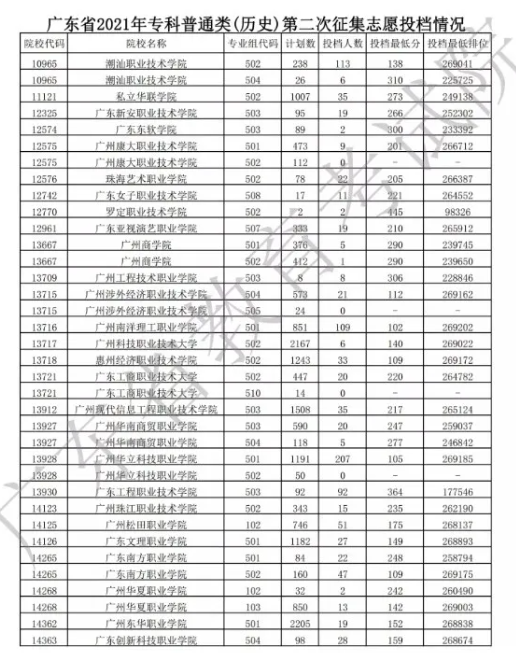 广东省2021年专科普通类(历史)第二次征集志愿投档情况
院校代码 院校名称 专业组代码 计划数 投档人数 投档最低分 投档最低排位
10965 潮汕职业技术学院 502 238 113 138 269041
10965 潮汕职业技术学院 504 26 6 310 225725
11121 私立华联学院 502 1007 35 273 249138
12325 广东新安职业技术学院 503 95 19 266 252302
12574 广东东软学院 503 89 2 300 233392
12575 广州康大职业技术学院 501 473 9 201 266712
12575 广州康大职业技术学院 502 112 0 - -
12576 珠海艺术职业学院 502 78 22 205 266387
12742 广东女子职业技术学院 508 17 11 221 264552
12770 罗定职业技术学院 502 2 2 445 98326
12961 广东亚视演艺职业学院 507 333 19 210 265912
13667 广州商学院 501 376 5 290 239745
13667 广州商学院 502 412 1 290 239650
13709 广州工程技术职业学院 503 8 8 306 228846
13715 广州涉外经济职业技术学院 504 573 21 112 269162
13715 广州涉外经济职业技术学院 505 24 0 - -
13716 广州南洋理工职业学院 501 851 109 102 269202
13717 广州科技职业技术大学 502 2167 6 140 269022
13718 惠州经济职业技术学院 502 1243 33 109 269172
13721 广东工商职业技术大学 502 447 20 220 264782
13721 广东工商职业技术大学 510 14 0 - -
13912 广州现代信息工程职业技术学院 503 1508 35 217 265124
13927 广州华南商贸职业学院 503 590 20 247 259037
13927 广州华南商贸职业学院 504 118 5 277 246842
13928 广州华立科技职业学院 501 1191 207 105 269185
13928 广州华立科技职业学院 502 50 0 - -
13930 广东工程职业技术学院 503 92 92 364 177546
14123 广州珠江职业技术学院 502 343 15 235 262190
14125 广州松田职业学院 102 746 51 175 268137
14126 广东文理职业学院 501 1182 27 149 268893
14265 广东南方职业学院 501 84 22 248 258794
14265 广东南方职业学院 502 160 47 109 269175
14268 广州华夏职业学院 102 32 2 242 260490
14268 广州华夏职业学院 103 850 13 142 269003
14362 广州东华职业学院 501 2205 19 152 268838
14363 广东创新科技职业学院 504 98 28 159 268674
广东省教育考试院